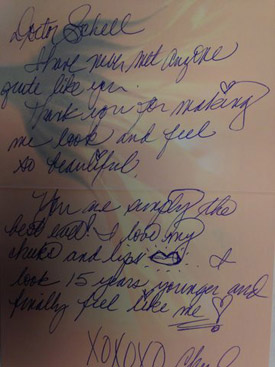 Doctor Schell
I have never met anyone
quite like you.
Thank you for making
me look and feel
so beautiful.
You are simply the
best ever! I love my
cheeks and lips I
look 15 years younger and
finally feel like me
XOXOXO